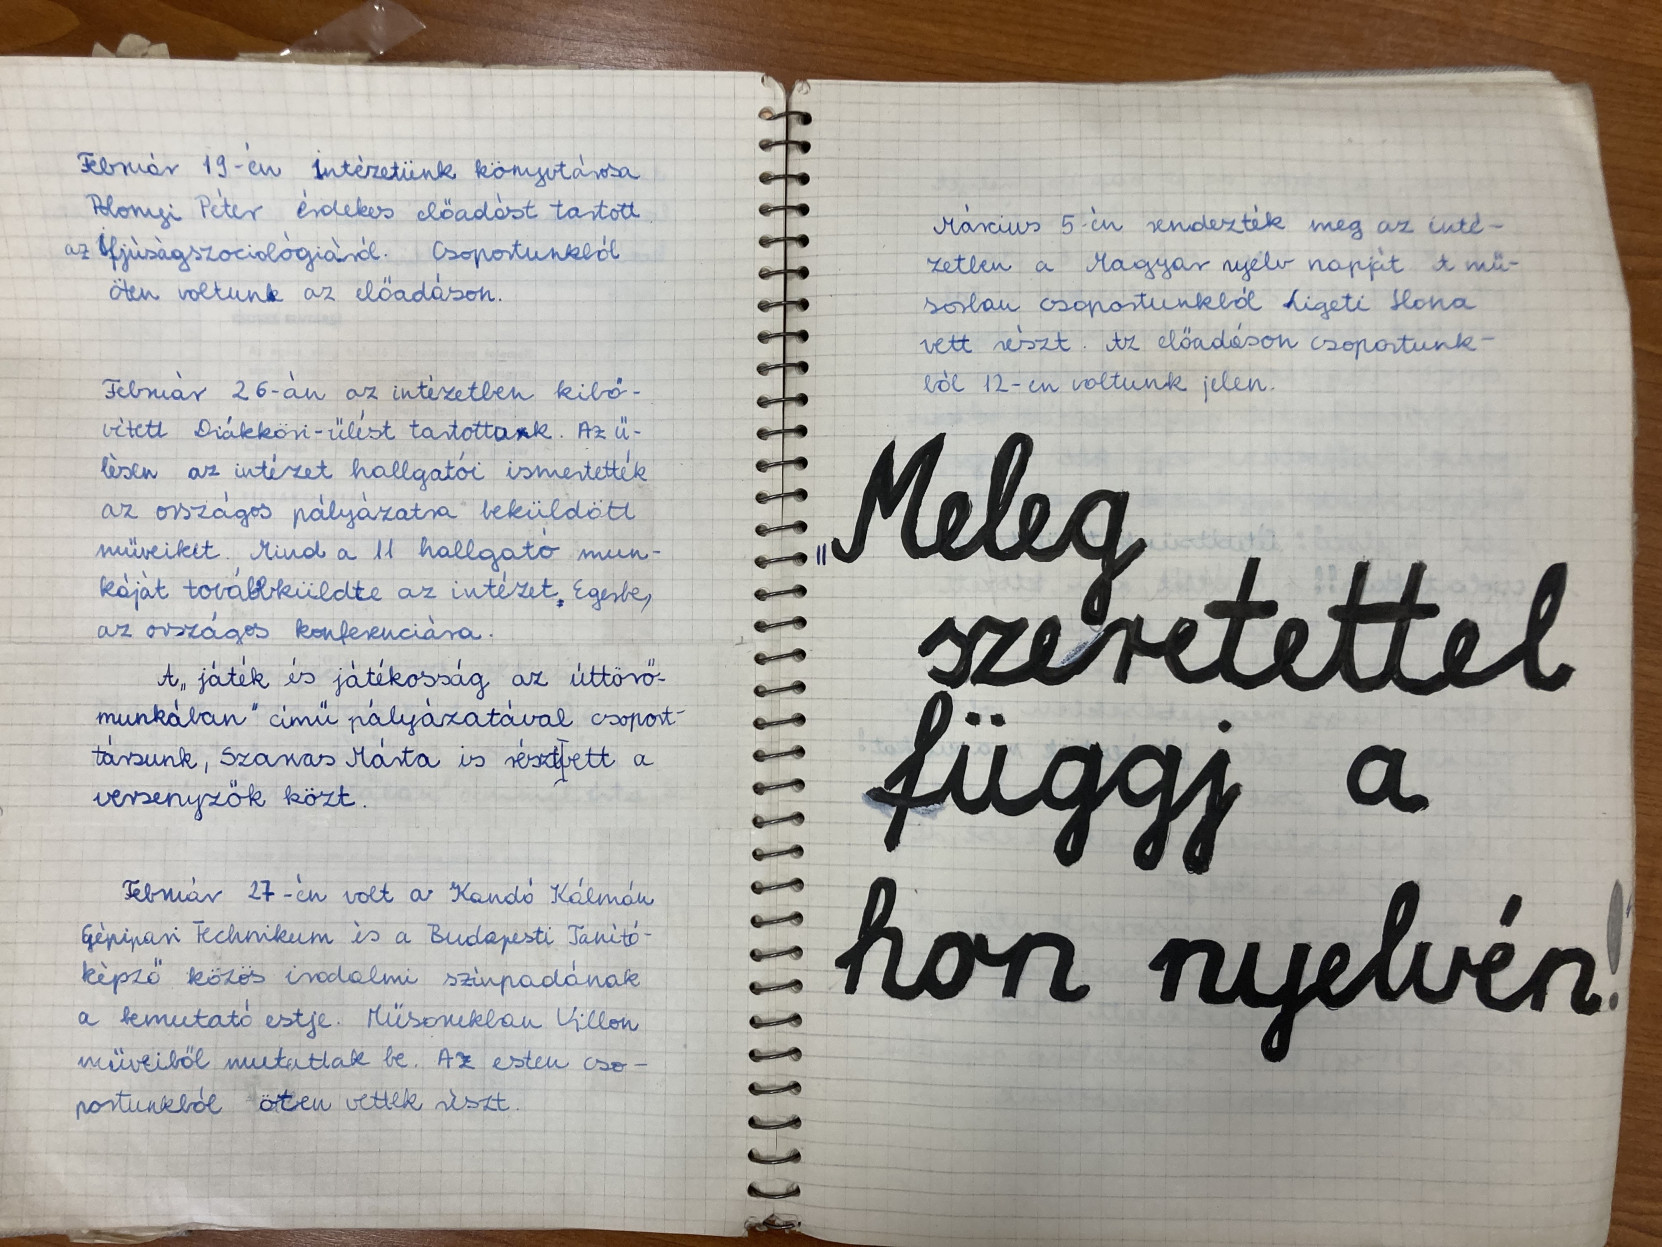 Február 19-én intézetünk könyvtárosa
Polonyi Péter érdekes előadást tartott
az ifjúságszociológiáról. Csoportunkból
öten voltunk az előadáson.
Február 26-án az intézetben kibő-
vített Diákköri-ülést tartottak. Az ü-
lésen az intézet hallgatói ismertették
az országos pályázatra beküldött
műveiket. Mind a 11 hallgató mun-
káját továbbküldte az intézet Egerbe,
az országos konferenciára.
A „játék és játékosság az úttörő-
munkában" című pályázatával csoport-
társunk, Szarvas Márta is részt vett a
versenyzők közt.
Február 27-én volt a Kandó Kálmán
Gépipari Technikum és a Budapesti Tanító-
képző közös irodalmi színpadának
a bemutató estje. Műsorukban Villon
műveiből mutattak be. Az esten cso-
portunkból öten vettek részt.
Március 5-én rendezték meg az inté-
zetben a Magyar nyelv napját. A mű-
sorban csoportunkból Ligeti Ilona
vett részt. Az előadáson csoportunk-
ból 12-en voltunk jelen.
„Meleg
szeretettel
függj a
hon nyelvén!